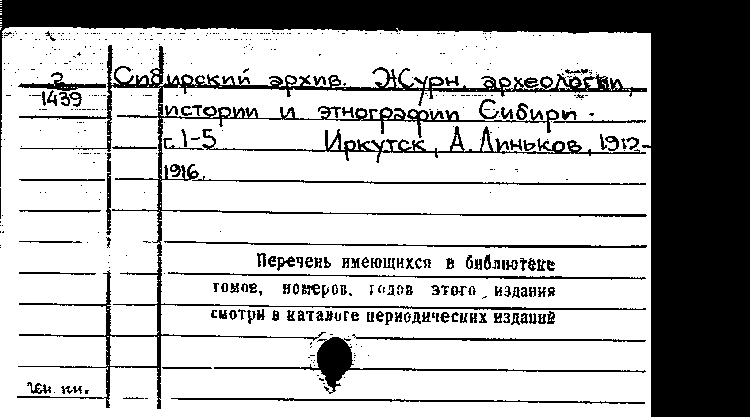 2
1439
Сибирский архив. Журн. археологии,
истории и этнографии Сибири.
г. 1-5 Иркутск, А. Линьков, 1912-
1916.
Перечень имеющихся в библиотеке
томов, номеров, годов этого издания
смотри в каталоге периодических изданий